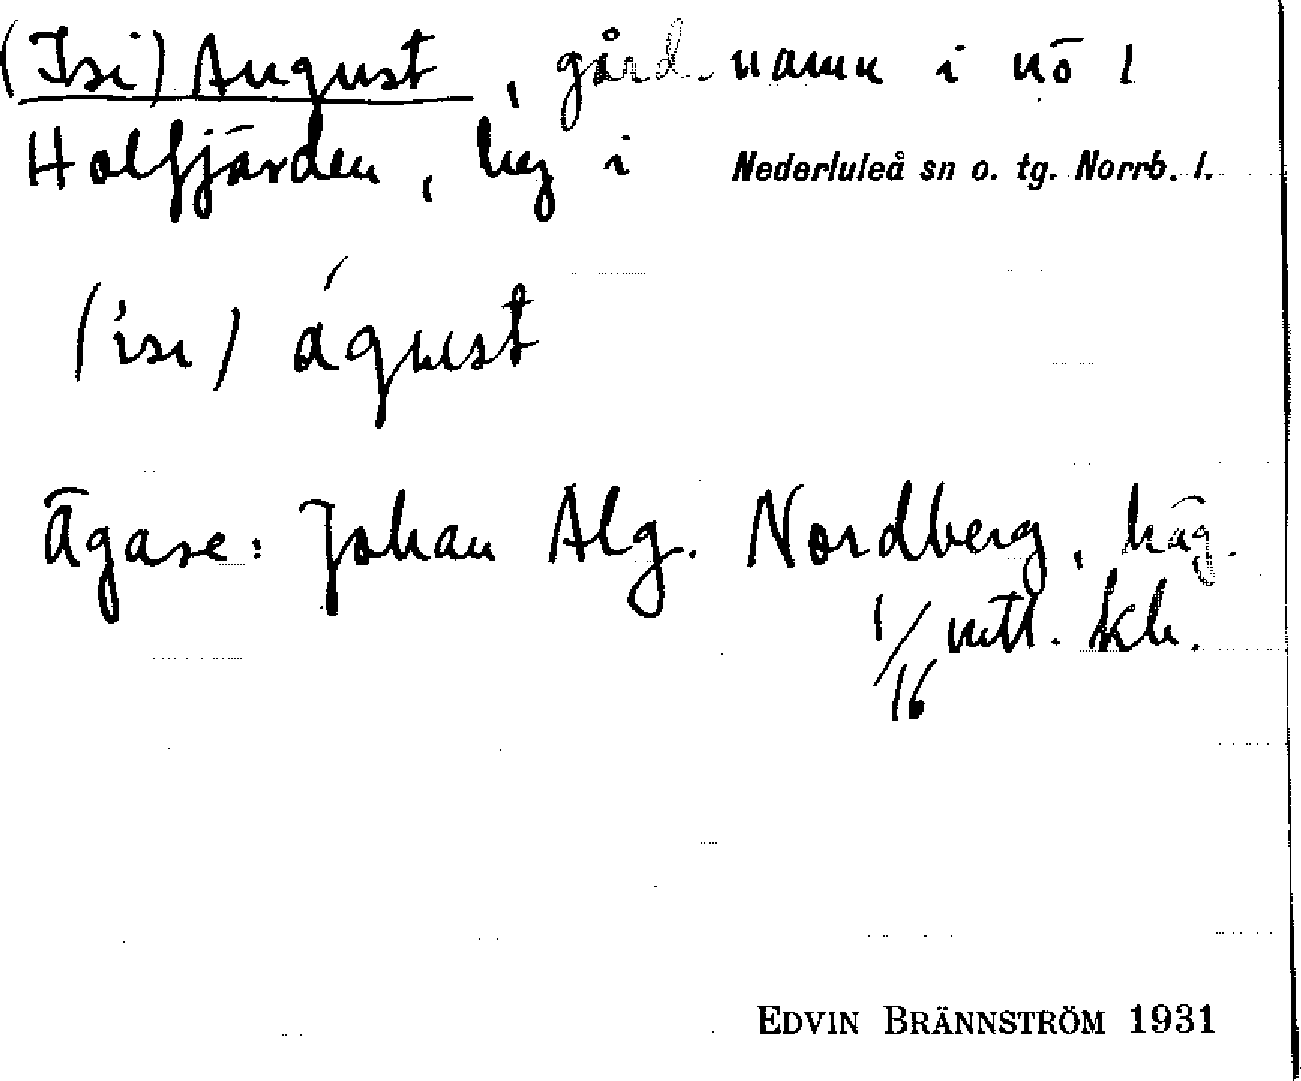 (Isi) August, gårdnamn i nö 1
Holfjärden, by i Nederluleå sn o. tg. Norrb. l.
(isi) águst
Ägare: Johan Alg. Nordberg, häg.
1/16 mtl. kr.
EDVIN BRÄNNSTRÖM 1931